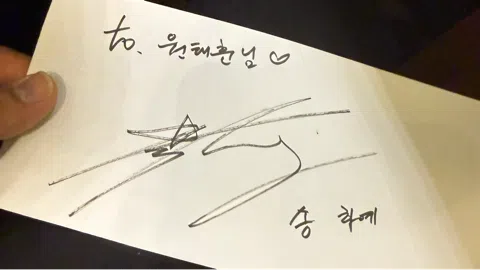 to. 원태훈님 ♡
송 하예